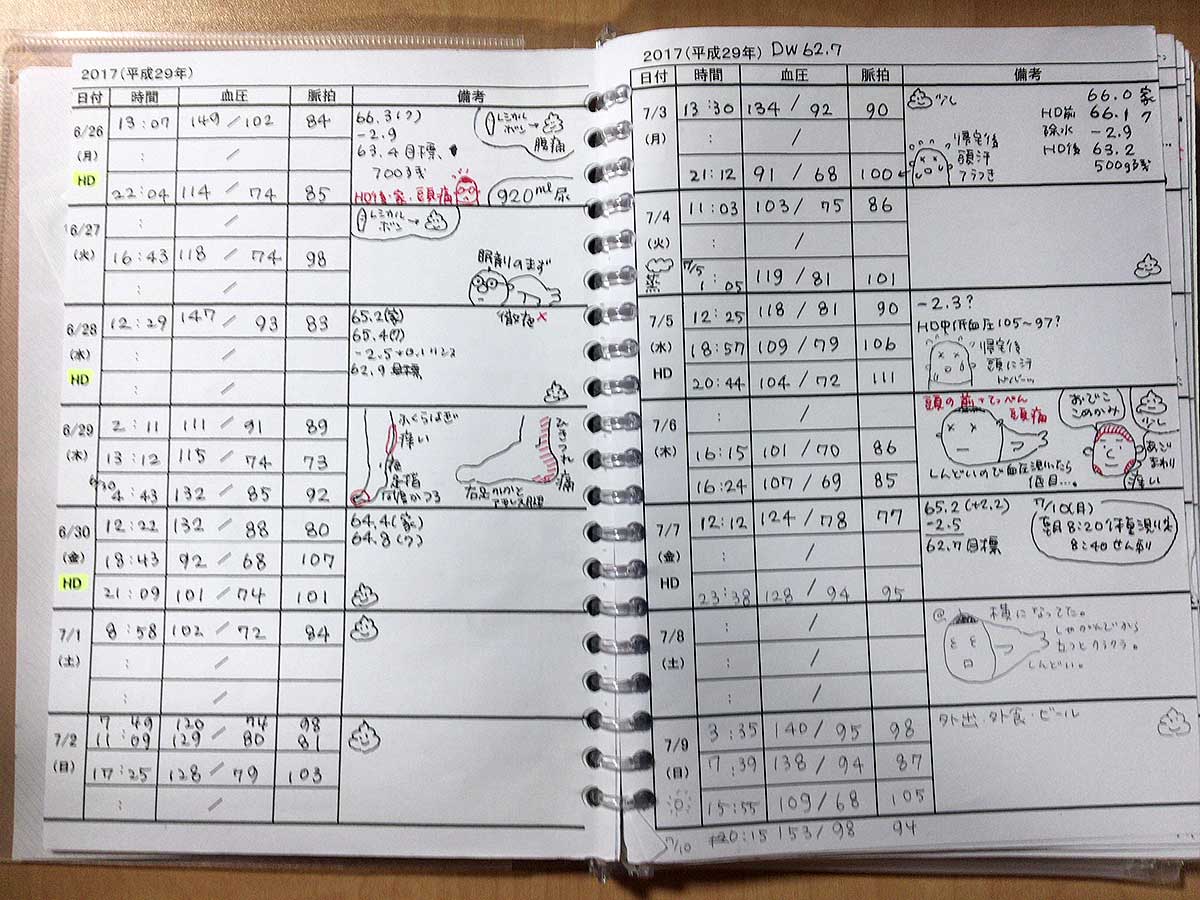 2017(平成29年)
日付 時間 血圧 脈拍 備考
6/26 (月) HD
13:07 149/102 84
: /
22:04 114/74 85
66.3(?)
-2.9
63.4目標、
700残
レミカル
ボン→
腹痛
HD後・家・頭痛
920ml尿
6/27 (火)
: /
16:43 118/74 98
: /
レミカル
ボン→
眠剤のまず
徹夜×
6/28 (水) HD
12:29 147/93 83
: /
: /
65.2(家)
65.4(ク)
62.9目標
6/29 (木)
2:11 111/91 89
13:12 115/74 73
6/30 4:43 132/85 92
ふくらはぎ
痒い
ひきつれ
痛
右足かかと
アキレス腱
6/30 (金) HD
12:22 132/88 80
18:43 92/68 107
21:09 101/74 101
64.4(家)
64.8(ク)
7/1 (土)
8:58 102/72 84
: /
: /
7/2 (日)
7:49 120/74 98
11:09 129/80 81
17:25 128/79 103
: /
2017(平成29年) DW62.7
日付 時間 血圧 脈拍 備考
7/3 (月)
13:30 134/92 90
: /
21:12 91/68 100
少し
66.0 家
HD前 66.1 ク
除水 -2.9
HD後 63.2
500g残
帰宅後
頭汗
フラつき
7/4 (火)
11:03 103/75 86
: /
7/5 1:05 119/81 101
7/5 (水) HD
12:25 118/81 90
18:57 109/79 106
20:44 104/72 111
-2.3?
HD中低血圧105~97?
帰宅後
頭に汗
ドバーッ
7/6 (木)
: /
16:15 101/70 86
16:24 107/69 85
頭の前とてっぺん
頭痛
しんどいので血圧測いたら
低目…。
おでこ
こめかみ
少し
あご
まわり
痒い
7/7 (金) HD
12:12 124/78 77
: /
23:38 128/94 95
65.2(+2.2)
-2.5
62.7目標
7/10(月)
朝8:20体重測り
8:40せん刺
7/8 (土)
: /
: /
: /
@ 横になってた。
しゃがんでから
立つとクラクラ。
しんどい。
7/9 (日)
3:35 140/95 98
7:39 138/94 87
15:55 109/68 105
外出・外食・ビール
7/10 20:15 153/98 94